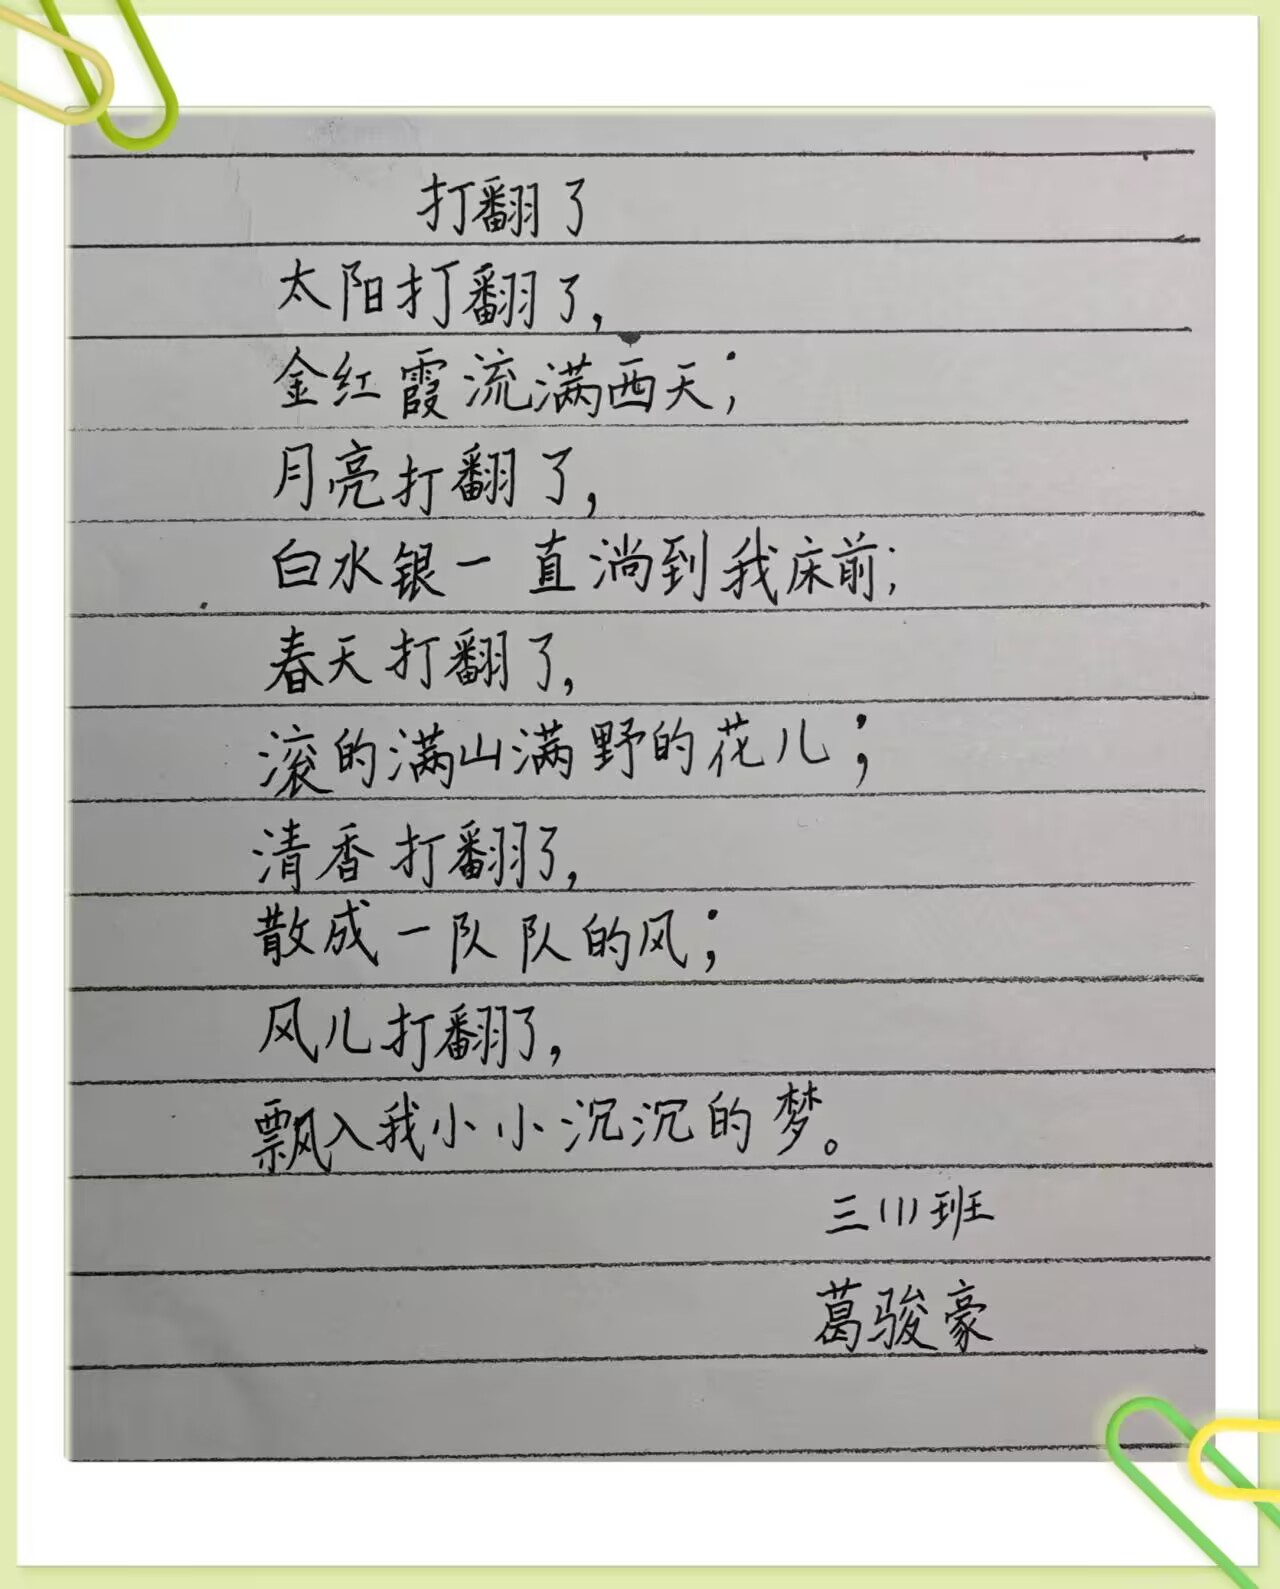 打翻了
太阳打翻了，
金红霞流满西天；
月亮打翻了，
白水银一直淌到我床前；
春天打翻了，
滚的满山满野的花儿；
清香打翻了，
散成一队队的风；
风儿打翻了，
飘入我小小沉沉的梦。
三(1)班
葛骏豪